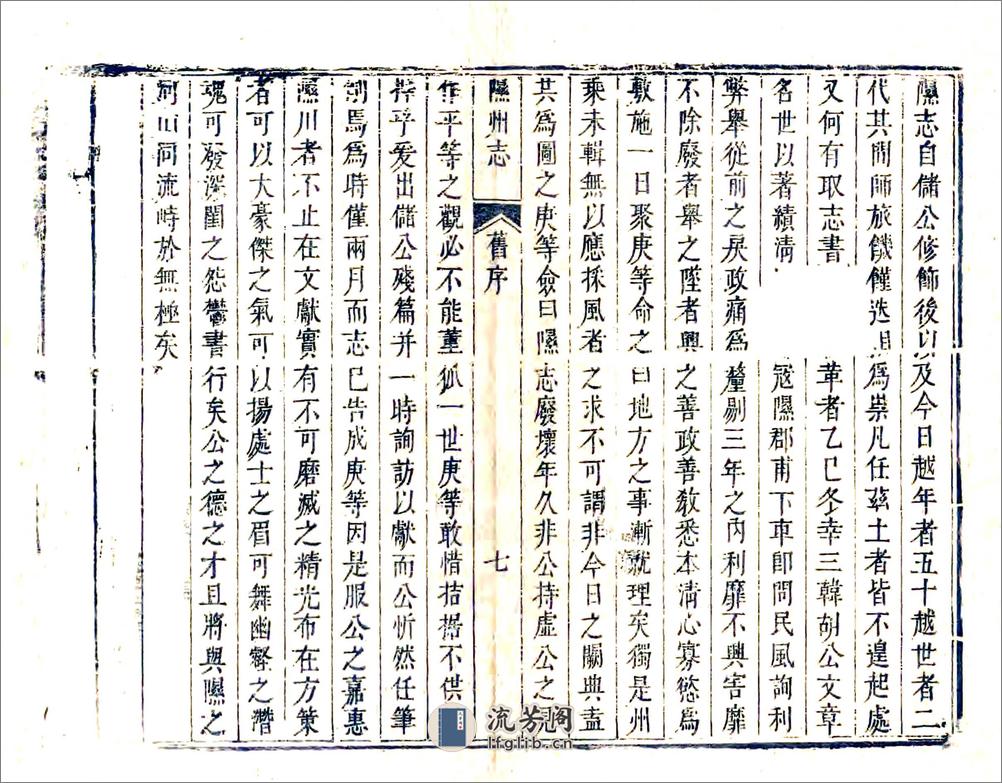 隰志自儲公修飾後以及今日越年者五十越世者二
代其間師旅饑饉迭相為祟凡任茲土者皆不遑起處
又何有取志書
革者乙巳冬幸三韓胡公文章
名世以著績清
寇隰郡甫下車即問民風詢利
弊舉從前之戾政痛為釐剔三年之內利靡不興害靡
不除廢者舉之墜者興之善政善教悉本清心寡慾為
敷施一日聚庚等命之曰地方之事漸就理矣獨是州
乘未輯無以應採風者之求不可謂非今日之闕典盍
共為圖之庚等僉曰隰志廢壞年久非公持虛公之
隰州志
舊序
七
作平等之觀必不能董狐一世庚等敢惜拮据不供
爰出儲公殘篇并一時詢訪以獻而公忻然任筆
削焉為時僅兩月而志已告成庚等因是服公之嘉惠
隰川者不止在文獻實有不可磨滅之精光布在方策
者可以大豪傑之氣可以揚處士之眉可舞幽壑之潛
魂可發深閨之怨鬱書行矣公之德之才且將與隰之
河山同流峙於無極矣
流芳閣
lfglib.cn